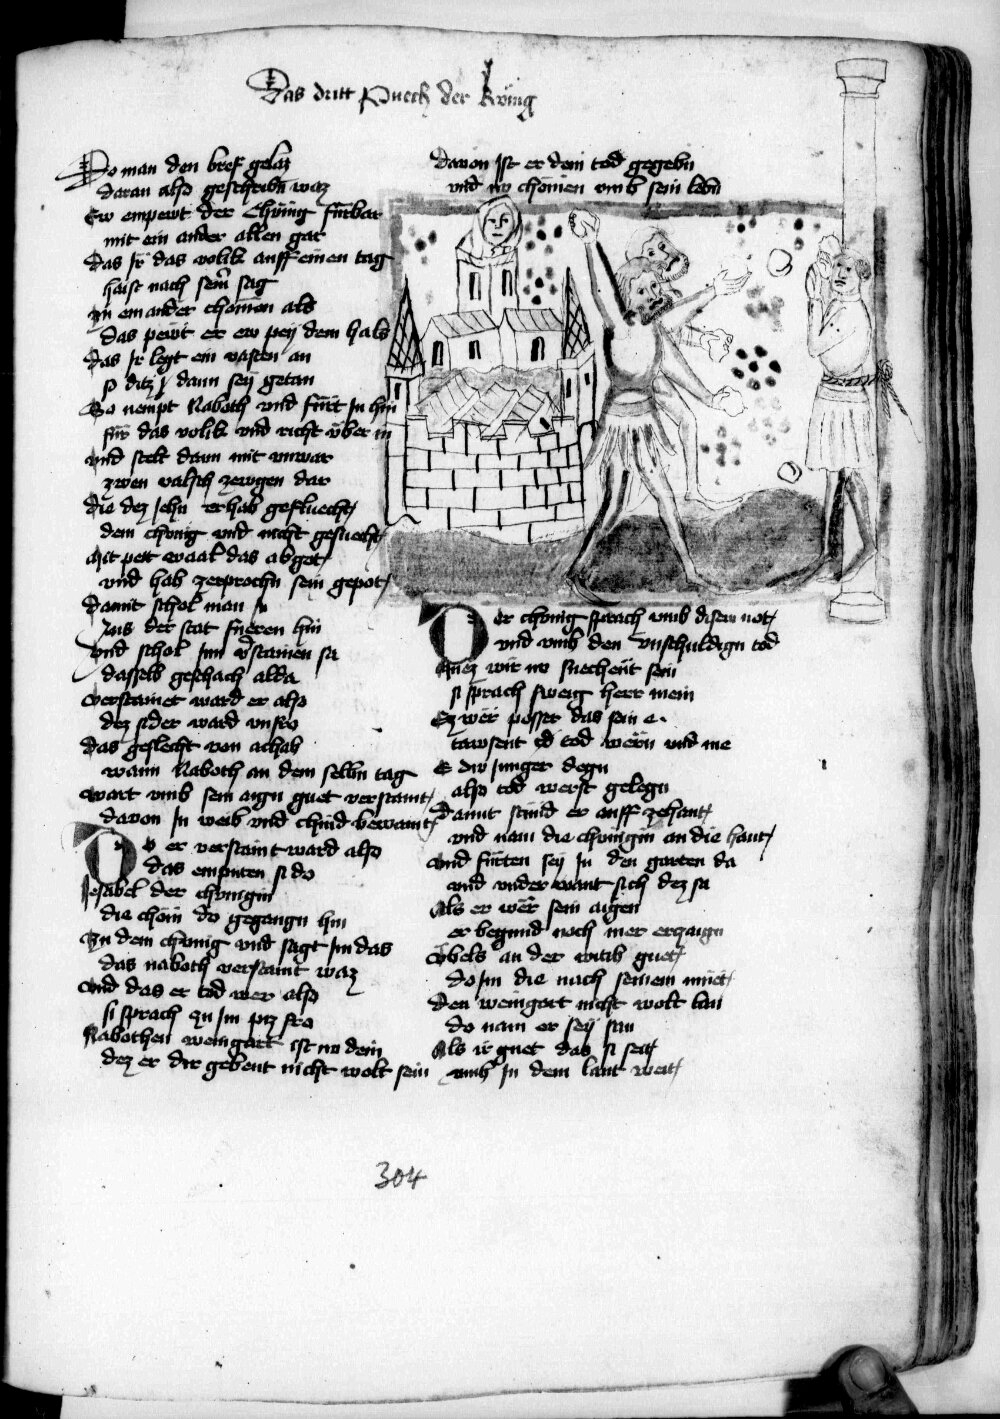 Das dritt Puech der Künig
Do man den brief gelaz
daran also geschribn waz
Ew empewt der Chünig fürbar
mit ein ander allen gar
Das Ir das volik auff einen tag
haist nach sein sag
Zu ein ander chomen als
das pewt er ew pey dem hals
Das Ir legt ein vasten an
so ditz dann sey getan
So nempt Naboth vnd fürt In hin
für das volik vnd richt über in
vnd stelt dann mit vnwar
zwen valsch zewgen dar
die dez jehn er hab gefluecht
dem chönig vnd nicht gesuecht
Mit pett waal das abgot
vnd hab zerprochn sein gepot
damit schol man
Aus der stat füeren hin
vnd schol Inn verstainen sa
dasselb geschach alda
Verstainet ward er also
dez sider ward vnfro
Das geslecht von achab
wann Naboth an dem selbn tag
Wart vmb sein aign guet verstaint
davon In weib vnd chind bewaint
Do er verstaint ward also
das emputen si do
Jesabel der chönigin
die chom do gegangn hin
Zu dem chönig vnd sagt Im das
das naboth verstaint waz
Vnd das er tod wer also
si sprach zu Im piz fro
Nabothen weingart ist nu dein
dez er dir gebent nicht wolt sein
Davon Ist er dem tod gegebn
vnd nu chomen vmb sein lebn
Der chönig sprach vmb disew not
vnd vmb den vnschuldign tod
Muez wir nu suechent sein
si sprach sweig herr mein
Ez wër pesser das sein e.
tawsent tod wërn vnd me
E dw Junger degn
also tod werst gelegn
Damit stund er auff zehant
vnd nam die chönigin an die hant
Vnd fürten sey In den garten da
vnd vnder want sich dez sa
Als er wër sein aigen
er begund noch mer erzaign
Übels an der witib guet
do Im die nach seinem muet
Den weingart nicht wolt lan
do nam er sey san
Als ir guet das si hett
vmb In dem lant wett
304